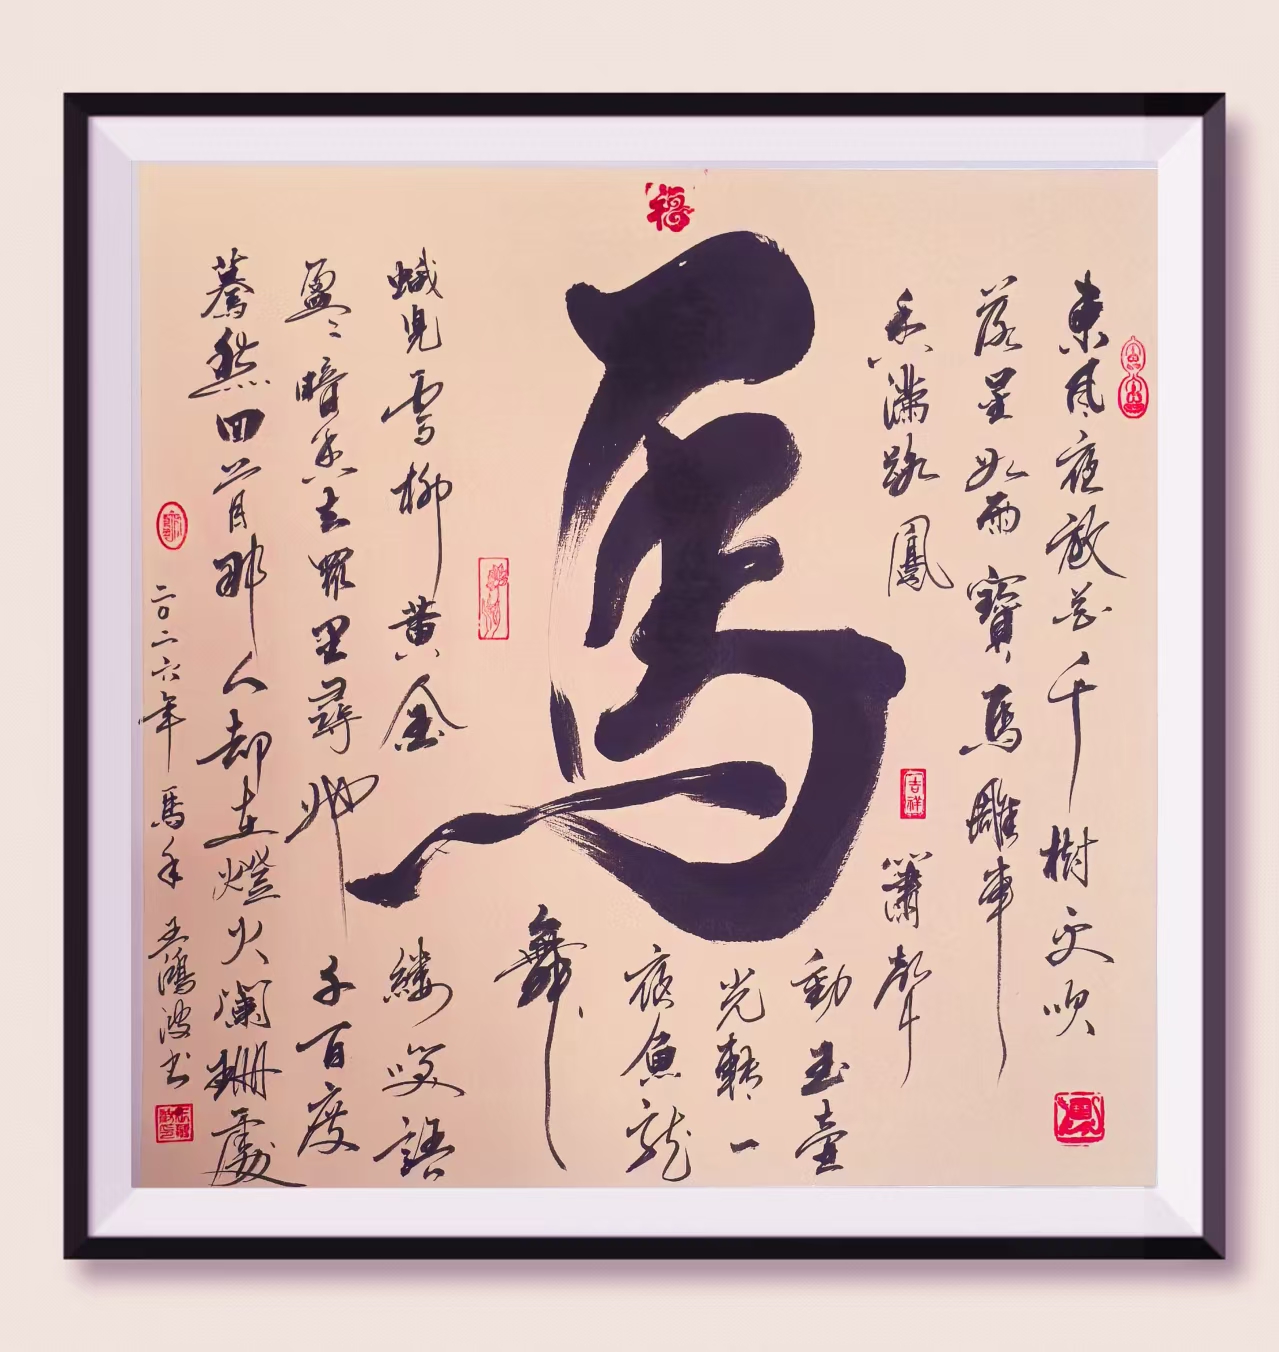 福
馬
東風夜放花千樹更吹
落星如雨寶馬雕車
香滿路鳳簫聲
動玉壺
光轉一
夜魚龍
舞
蛾兒雪柳黃金縷咲語
盈〻暗香去眾里尋他千百度
驀然回首那人却在燈火闌珊處
二〇二六年馬年王鴻波書
吉祥